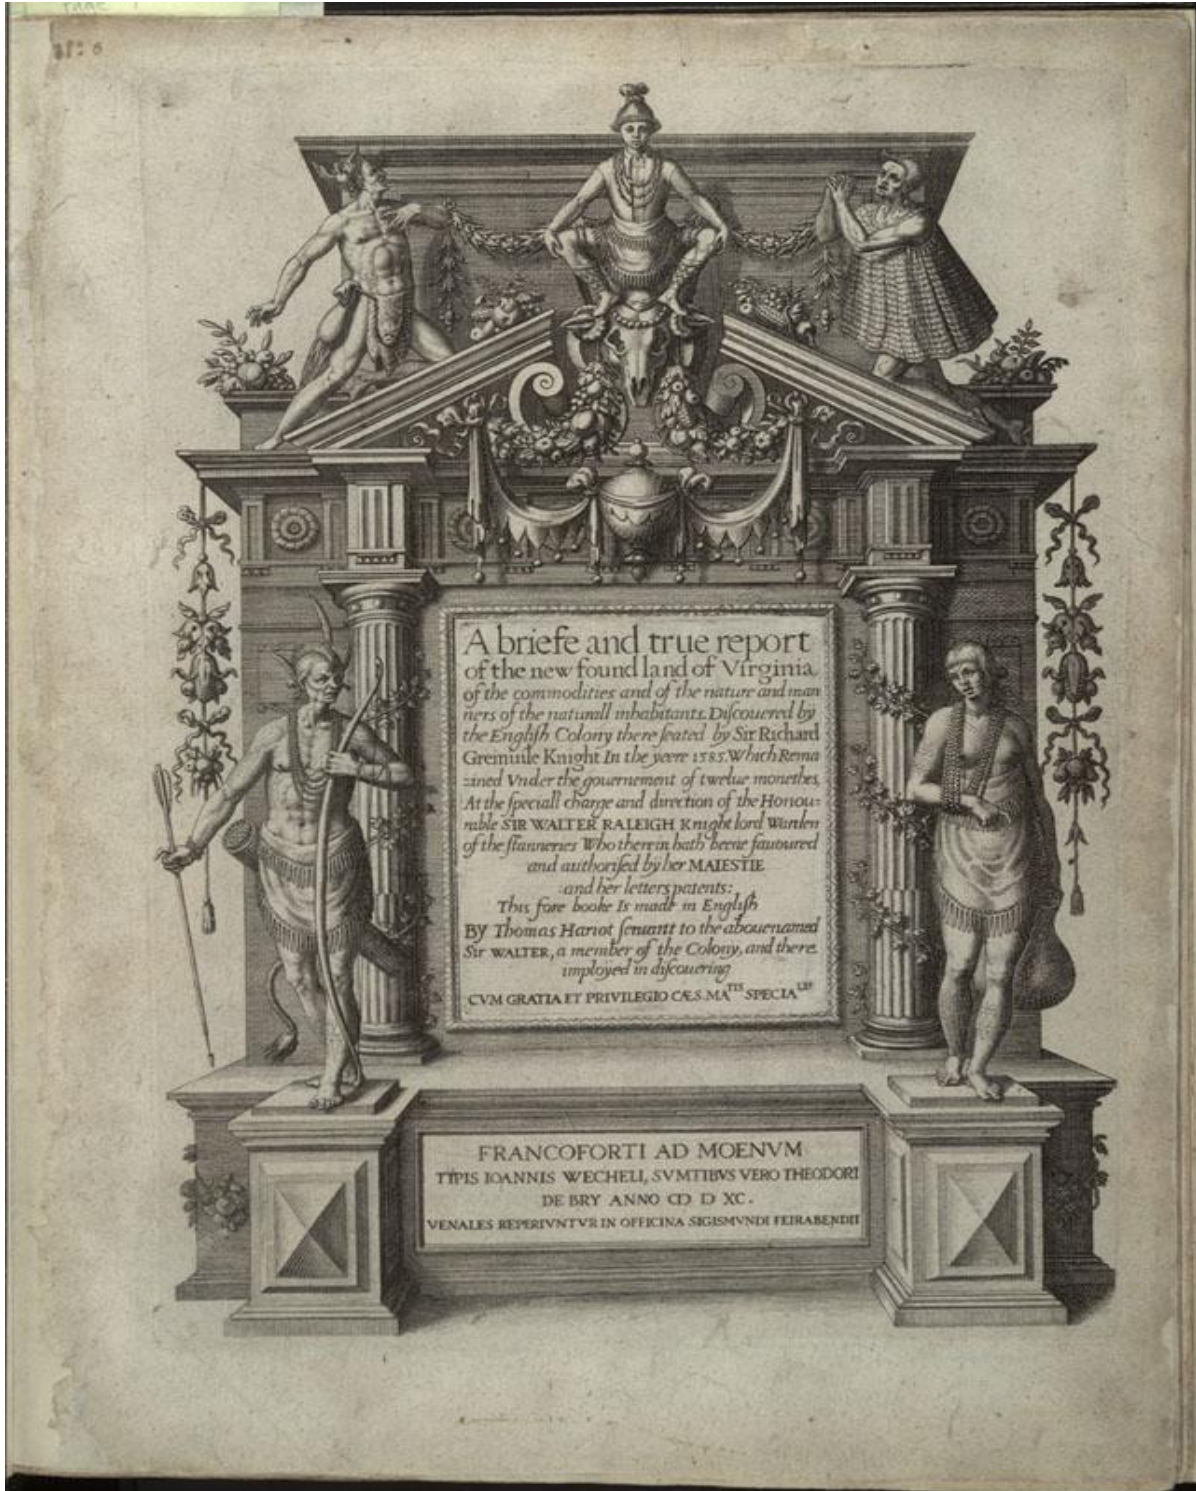 A briefe and true report
of the new found land of Virginia,
of the commodities and of the nature and man
ners of the naturall inhabitants. Diſcouered by
the Engliſh Colony there ſeated by Sir Richard
Greinuile Knight In the yeere 1585. Which Rema
:ined Vnder the gouernement of twelue monethes,
At the ſpeciall charge and direction of the Honou:
rable SIR WALTER RALEIGH Knight lord Warden
of the ſtanneries Who therein hath beene fauoured
and authoriſed by her MAIESTIE
:and her letters patents:
This fore booke Is made in Engliſh
By Thomas Hariot ſeruant to the abouenamed
Sir WALTER, a member of the Colony, and there
imployed in diſcouering
CVM GRATIA ET PRIVILEGIO CÆS. MA^TIS SPECIA^LI
FRANCOFORTI AD MOENVM
TYPIS IOANNIS WECHELI, SVMTIBVS VERO THEODORI
DE BRY ANNO CIƆ D XC.
VENALES REPERIVNTVR IN OFFICINA SIGISMVNDI FEIRABENDII